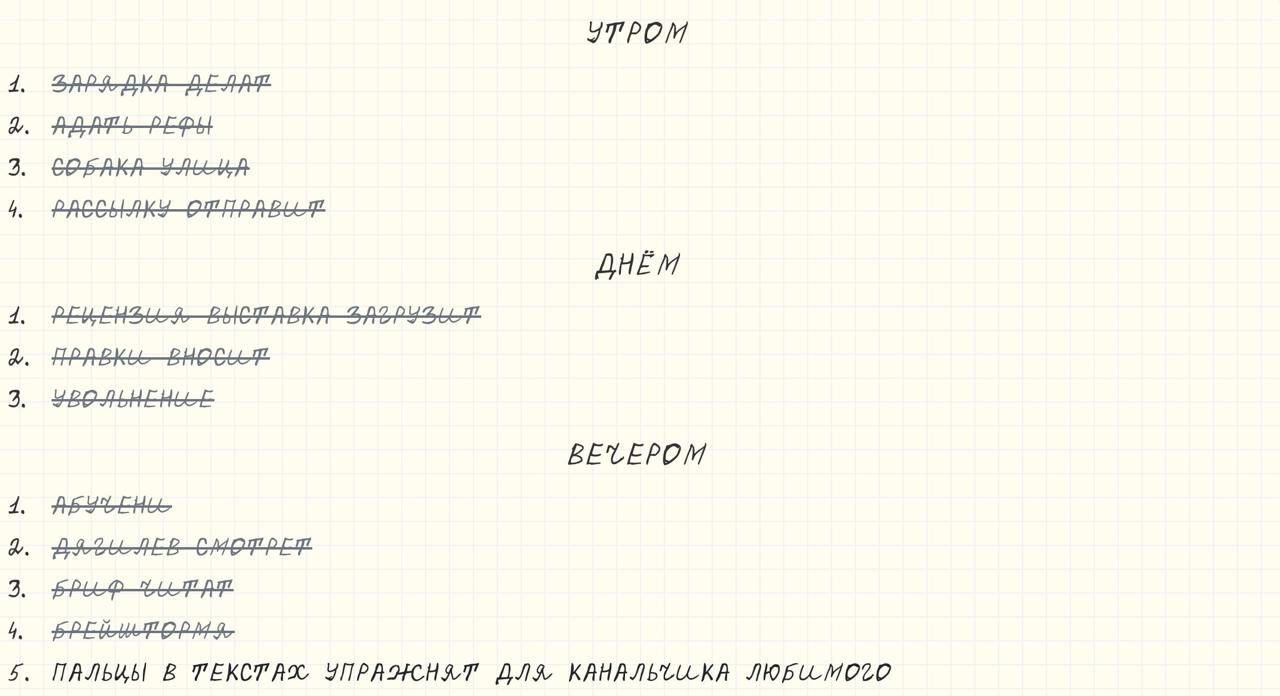 УТРОМ
1. ЗАРЯДКА ДЕЛАТ
2. АДАТЬ РЕФЫ
3. СОБАКА УЛИЦА
4. РАССЫЛКУ ОТПРАВИТ
ДНЁМ
1. РЕЦЕНЗИЯ ВЫСТАВКА ЗАГРУЗИТ
2. ПРАВКИ ВНОСИТ
3. УВОЛЬНЕНИЕ
ВЕЧЕРОМ
1. АБУЧЕНИ
2. ДЯГИЛЕВ СМОТРЕТ
3. БРИФ ЧИТАТ
4. БРЕЙШТОРМЯ
5. ПАЛЬЦЫ В ТЕКСТАХ УПРАЖНЯТ ДЛЯ КАНАЛЬЧИКА ЛЮБИМОГО